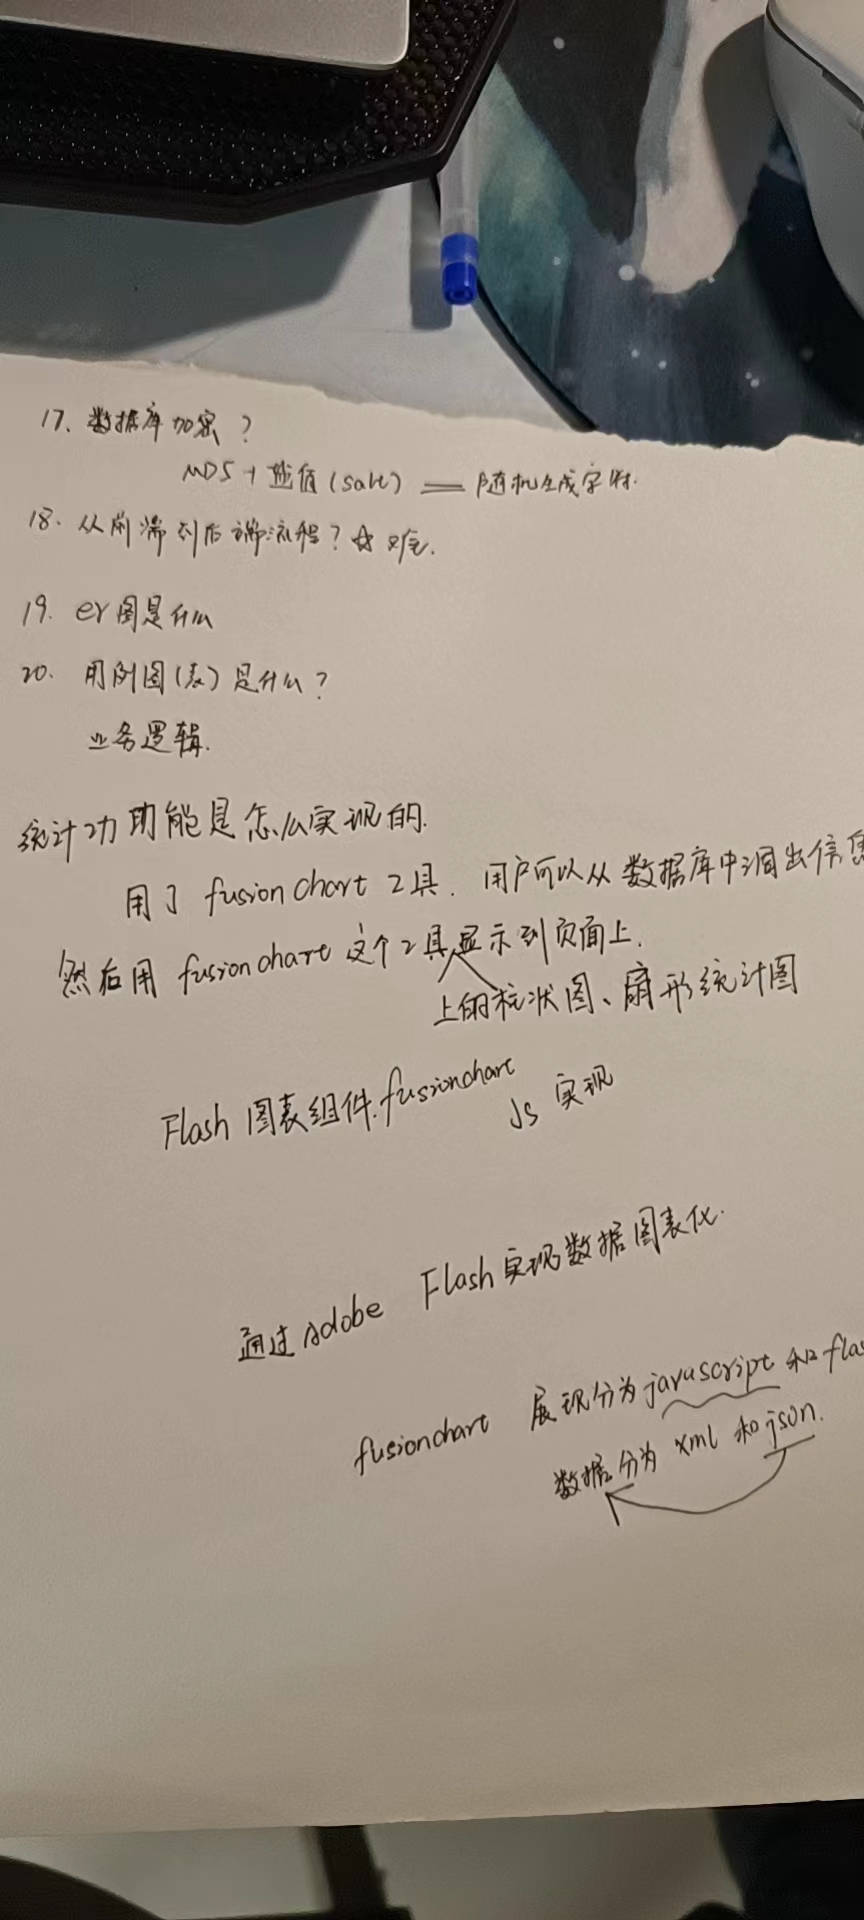 17. 数据库加密?
MD5+盐值(salt) — 随机生成字符.
18. 从前端到后端流程? 难.
19. er图是什么
20. 用例图(表)是什么?
业务逻辑.
统计功能是怎么实现的.
用了 fusionchart 工具. 用户可以从数据库中调出信息
然后用 fusionchart 这个工具显示到页面上.
上的柱状图、扇形统计图
Flash 图表组件.fusionchart
Js 实现
通过Adobe Flash实现数据图表化.
fusionchart 展现分为javascript 和 flas
数据分为 xml 和json.